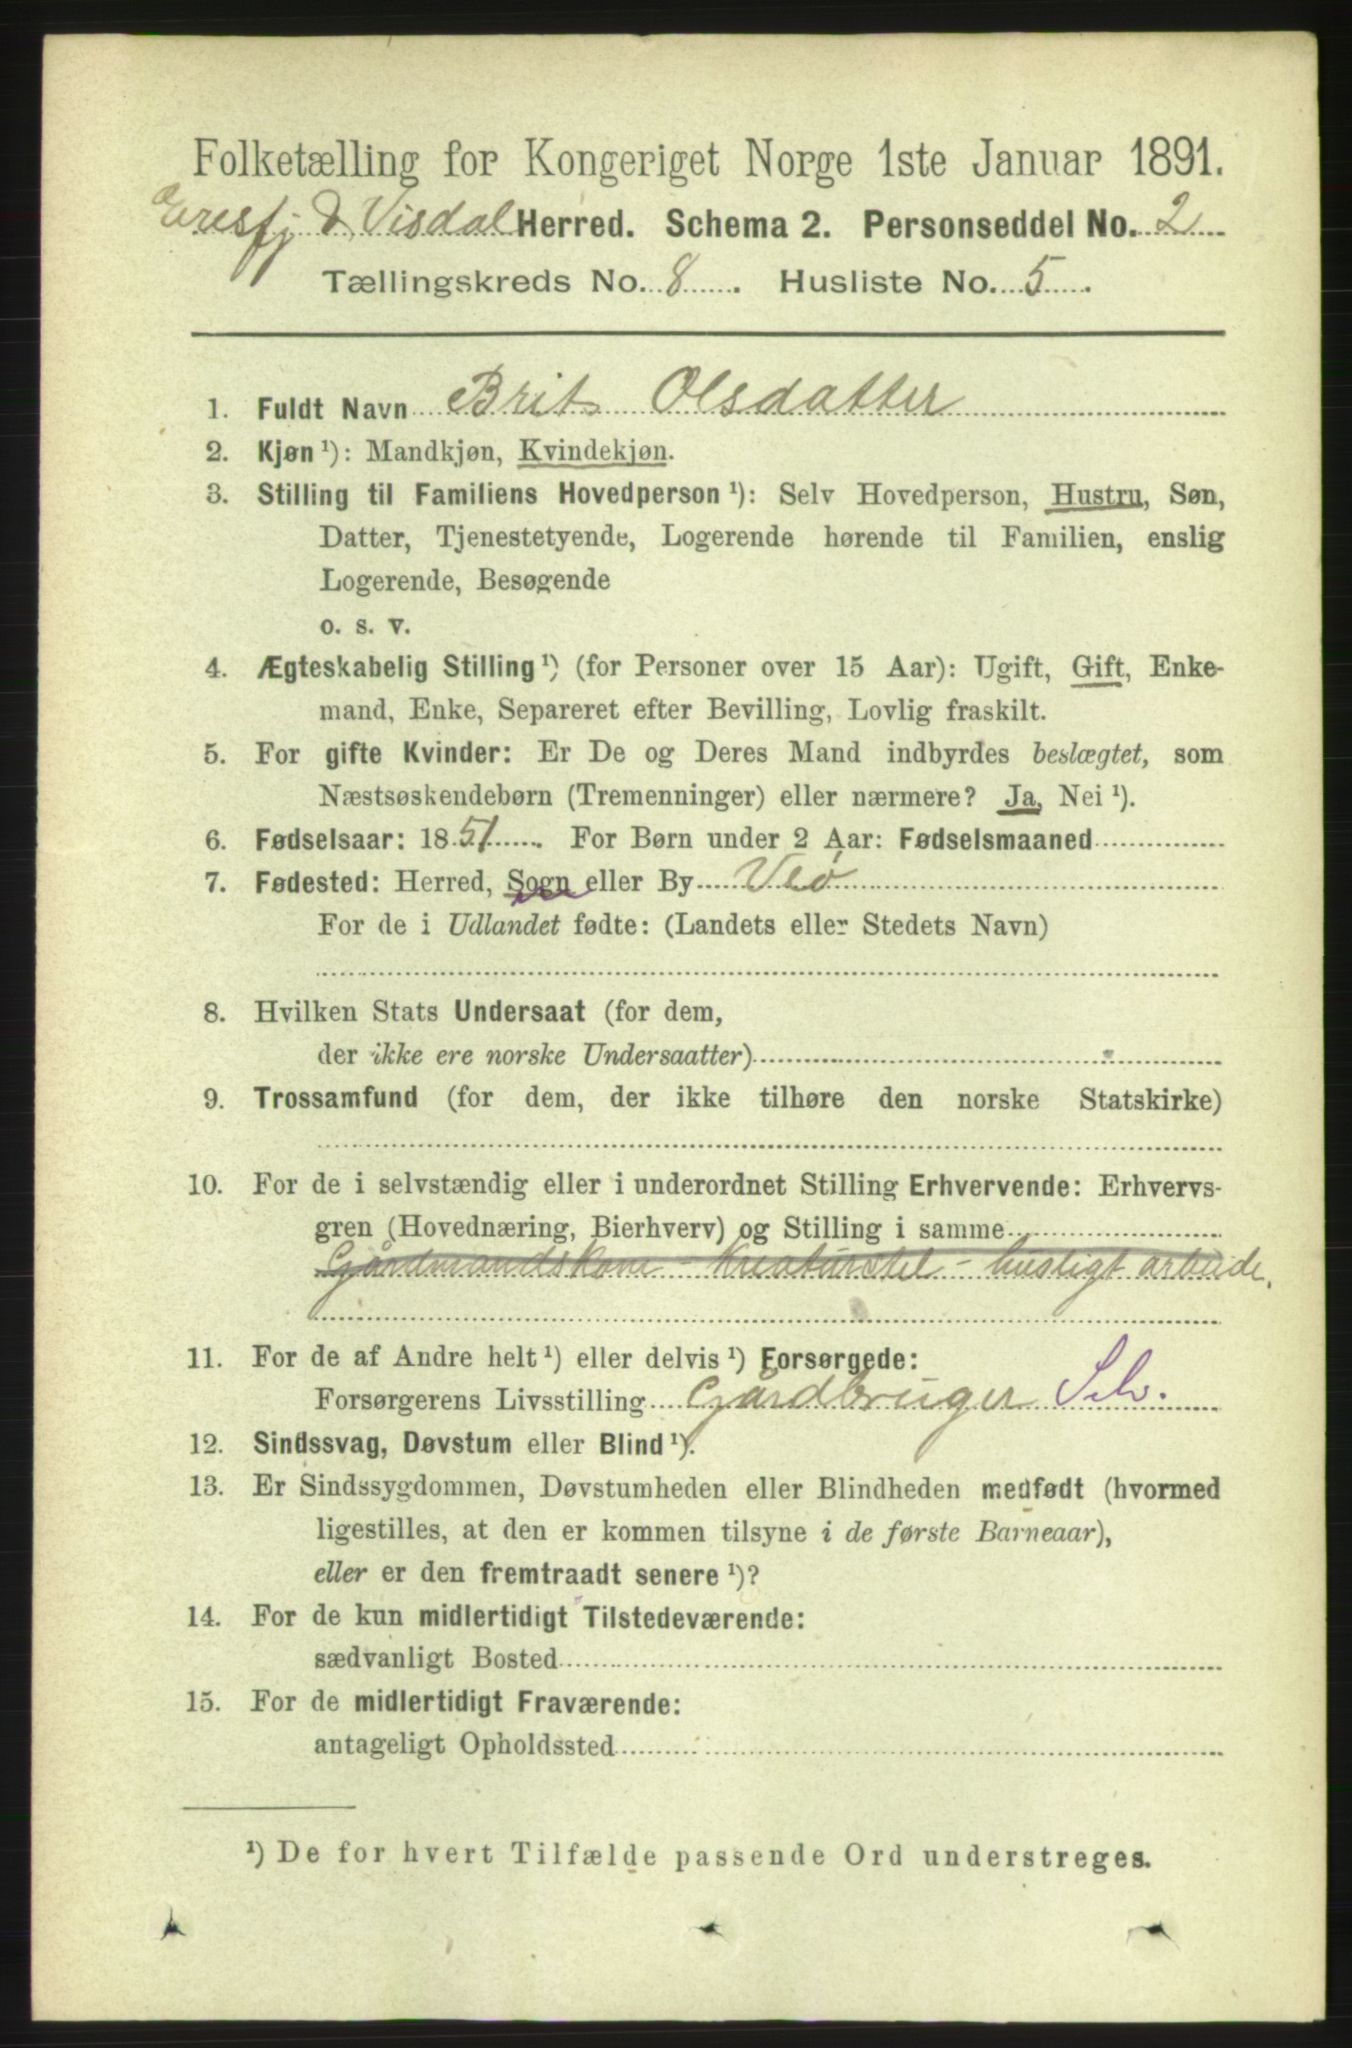 Folketælling for Kongeriget Norge 1ste Januar 1891.
Eresfj & Visdal Herred. Schema 2. Personseddel No. 2
Tællingskreds No. 8. Husliste No. 5.
1. Fuldt Navn Brit Olsdatter
2. Kjøn¹): Mandkjøn, Kvindekjøn.
3. Stilling til Familiens Hovedperson¹): Selv Hovedperson, Hustru, Søn,
Datter, Tjenestetyende, Logerende hørende til Familien, enslig
Logerende, Besøgende
o. s. v.
4. Ægteskabelig Stilling¹) (for Personer over 15 Aar): Ugift, Gift, Enke-
mand, Enke, Separeret efter Bevilling, Lovlig fraskilt.
5. For gifte Kvinder: Er De og Deres Mand indbyrdes beslægtet, som
Næstsøskendebørn (Tremenninger) eller nærmere? Ja, Nei¹).
6. Fødselsaar: 1851. For Børn under 2 Aar: Fødselsmaaned
7. Fødested: Herred, Sogn eller By Veø
For de i Udlandet fødte: (Landets eller Stedets Navn)
8. Hvilken Stats Undersaat (for dem,
der ikke ere norske Undersaatter)
9. Trossamfund (for dem, der ikke tilhøre den norske Statskirke)
10. For de i selvstændig eller i underordnet Stilling Erhvervende: Erhvervs-
gren (Hovednæring, Bierhverv) og Stilling i samme
Gårdmandskone - Kreaturstel - husligt arbeide.
11. For de af Andre helt¹) eller delvis¹) Forsørgede:
Forsørgerens Livsstilling Gårdbruger Selv.
12. Sindssvag, Døvstum eller Blind¹).
13. Er Sindssygdommen, Døvstumheden eller Blindheden medfødt (hvormed
ligestilles, at den er kommen tilsyne i de første Barneaar),
eller er den fremtraadt senere¹)?
14. For de kun midlertidigt Tilstedeværende:
sædvanligt Bosted
15. For de midlertidigt Fraværende:
antageligt Opholdssted
¹) De for hvert Tilfælde passende Ord understreges.